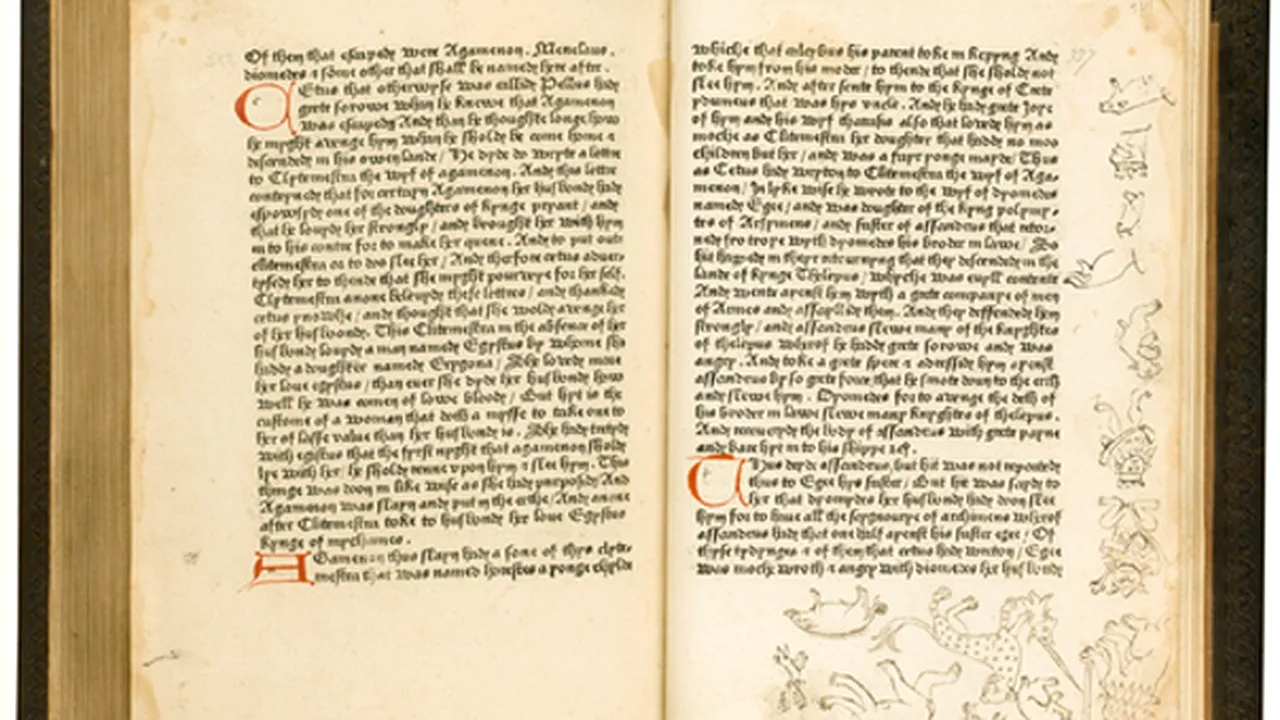 Of them that escaped were Agamenon. Menelaus.
diomedes & some other that shall be named here after.
CEtus that otherwyse was callid Pelleus hady
grete sorowe whan he knewe that Agamenon
was escaped And than he thoughte longe how
he myght avenge hym whan he sholde be come home &
descended in his owen lande / He dyde do wryte a lettre
to Clytemestra the wyf of agamenon. And this lettre
conteyned that for certayn Agamenon her husbonde hady
espowsyde one of the doughters of kynge pryant / and
that he louyde her strongly / and brought her with hym
in to his contre for to make her quene. And to put out
clitemestra or to doo slee her / And therfore cetus aduer-
tysed her to thende that she myght pourveye for her self.
Clytemestra anone beleuyd these lettres / and thanked
cetus / and thought that she wolde avenge her
of her husbonde. This Clitemestra in the absence of her
husbond louyd a man named Egystus by whome she
hadde a doughter named Erygona / She loved more
her loue egystus / than ever she dyde her husbonde how
well he was comen of lowe bloode / But hyt is the
custome of a woman that doth a mysse to take one to
her of lasse value than her husbonde is. She hady tretyd
with egistus that the fyrst nyght that agamenon sholde
lye with her he sholde renne vpon hym & slee hym. This
thinge was doon in like wise as she hady purposid And
Agamenon was slayn and put in the erthe / And anone
after Clitemestra toke to husbonde her loue Egystus
kynge of
AGamenon thus slayn hady a sone of thys clyte-
mestra that was named horestes a yonge chylde
whiche that his parent toke in kepyng And
toke hym from his moder / to thende that she sholde not
slee hym. And after sente hym to the kynge of Crete
ydumeus that was hys vncle. And he hade grete Joye
of hym and his wyf also that loved hym as
moche as Clitemestra her doughter that hadde no moo
children but her / and was a fayr yonge mayde / Thus
as Cetus hade wryton to Clitemestra the wyf of Aga-
menon / In lyke wise he wrote to the wyf of dyomedes
named Egee / and was doughter of the kyng
of / and suster of assandeus that retor-
ned fro troye wyth dyomedes his broder in lawe / So
hit happed in theyr retournyng that they descended in the
lande of kynge Thelepus / whyche was euyll contente
And wente ayenst hem wyth a grete companye of men
of Armes and assayllid them. And they deffended hem
strongly / and assandeus slewe many of the knyghtes
of thelepus wherof he hadde grete sorowe and was
angry. And toke a grete spere & adressid hym ayenst
assandeus by so grete force that he smote doun to the erth
and slewe hym. Dyomedes for to avenge the deth of
his broder in lawe slewe many knyghtes of thelepus.
And recoueryd the body of assandeus with grete payne
and bare hyt in to his shippe
THus deyde assandeus, but hit was not reported
thus to Egee hys suster / But hit was sayd to
her that dyomedes her husbond hade doon slee
hym for to haue all the seygnourye of wherof
assandeus hade that one half ayenst his suster egee / Of
thyse tydynges & of them that cetus hade wreton / Egee
was moche wroth & angry with diomedes her husbonde